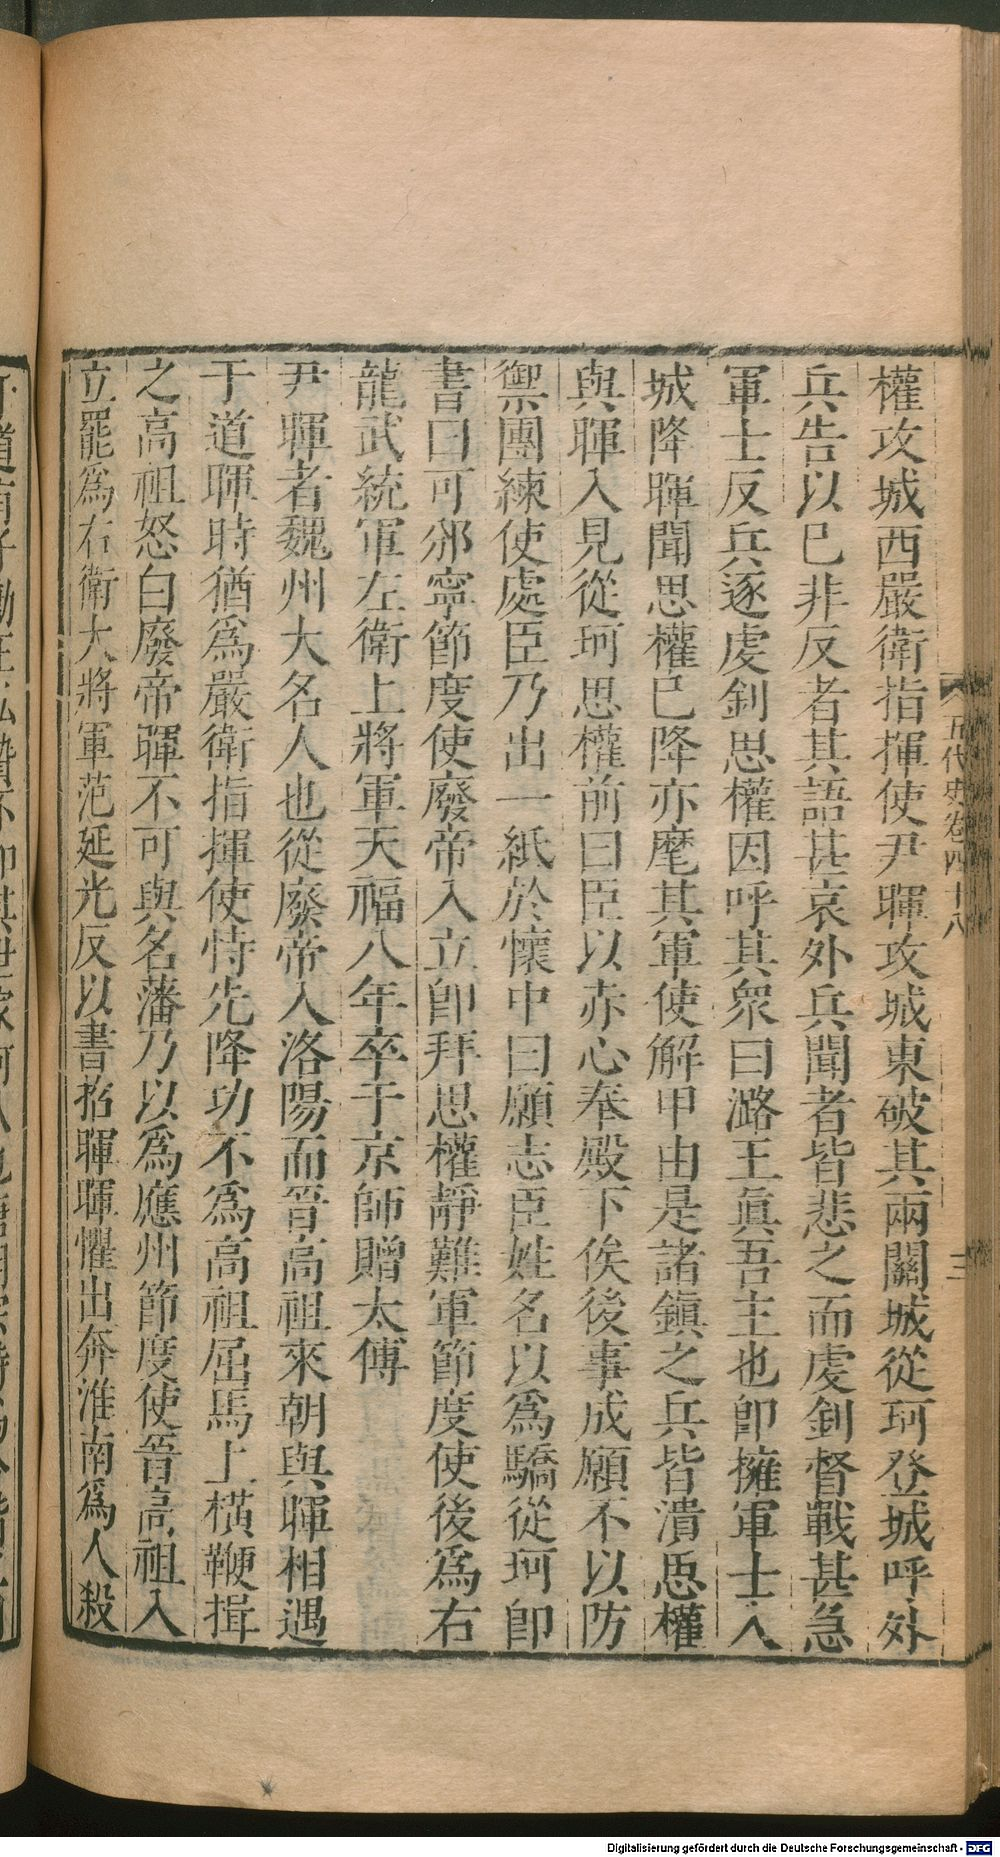 權攻城西嚴衛指揮使尹暉攻城東破其兩關城從珂登城呼外
兵告以巳非反者其語甚哀外兵聞者皆悲之而虔釗督戰甚急
軍士反兵逐虔釗思權因呼其衆曰潞王眞吾主也卽擁軍士入
城降暉聞思權巳降亦麾其軍使解甲由是諸鎭之兵皆潰思權
與暉入見從珂思權前曰臣以赤心奉殿下俟後事成願不以防
禦團練使處臣乃出一紙於懷中曰願志臣姓名以爲驗從珂卽
書曰可邠寧節度使廢帝入立卽拜思權靜難軍節度使後爲右
龍武統軍左衛上將軍天福八年卒于京師贈太傅
尹暉者魏州大名人也從廢帝入洛陽而晉高祖來朝與暉相遇
于道暉時猶爲嚴衛指揮使恃先降功不爲高祖屈馬上橫鞭揖
之高祖怒白廢帝暉不可與名藩乃以爲應州節度使晉高祖入
立罷爲右衛大將軍范延光反以書招暉暉懼出奔淮南爲人殺
五代史卷四十八
三
Digitalisierung gefördert durch die Deutsche Forschungsgemeinschaft - DFG